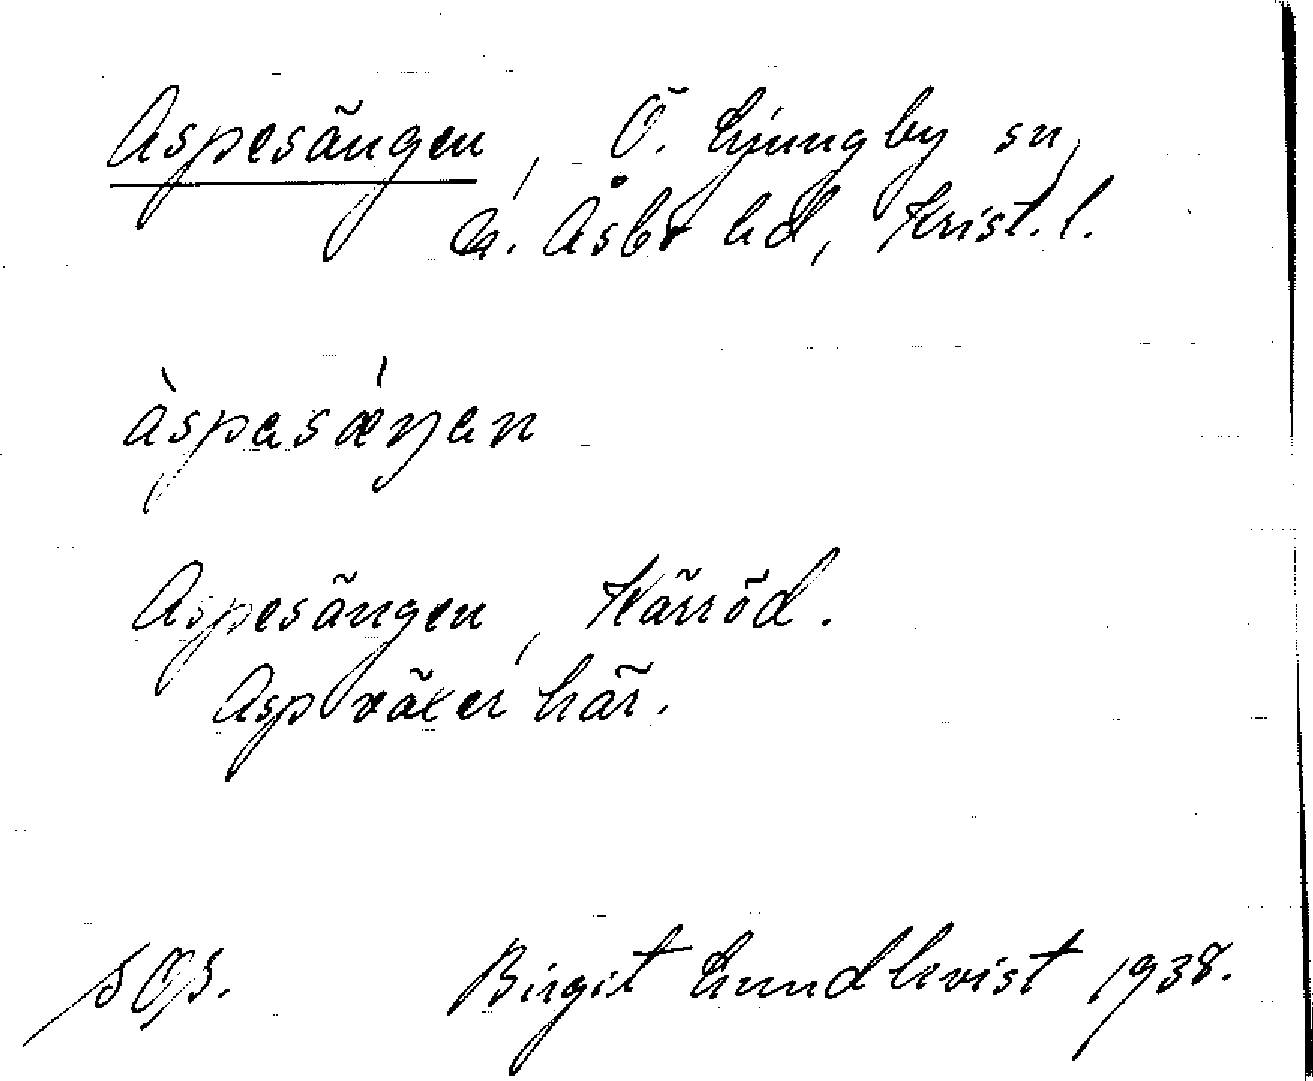 Aspesängen, Ö. Ljungby sn,
N. Åsbo hd, Krist. l.
àspasæ̀ŋan
Aspesängen, Kärröd.
Asp växer här.
Birgit Lundkvist 1938.